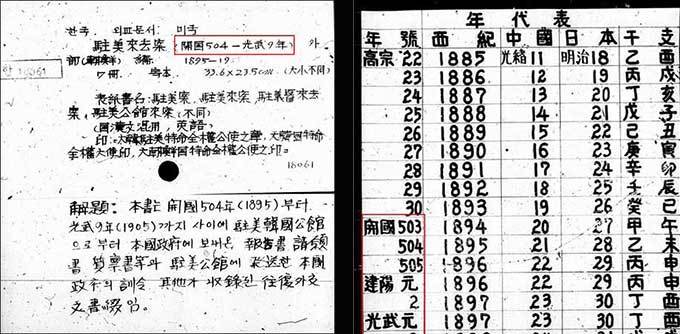 한국 외교문서: 미국
駐美來去案 (開國504-光武9年) 外
部(朝鮮) 編 1895-19
7冊 寫本 33.6x23.5cm (大小不同)
表紙書名: 駐美案, 駐美來案, 駐美署來去
案, 駐美公館來案 (不同)
(國漢文混用, 英語)
印: 大韓駐美特命全權公使之章, 大韓國特命
全權大使印, 大朝鮮国特命全權公使之印
18061
18061
解題: 本書는 開國504年(1895)부터
光武9年(1905)까지 사이에 駐美韓國公館
으로부터 本國政府에 보내온 報告書 請願
書 契票書等과 駐美公館에 發送한 本國
政府의 訓令 其他가 收錄된 往復外交
文書綴임.
年代表
年號 西紀 中國 日本 干支
高宗 22 1885 光緒 11 明治 18 乙 酉
23 1886 12 19 丙 戌
24 1887 13 20 丁 亥
25 1888 14 21 戊 子
26 1889 15 22 己 丑
27 1890 16 23 庚 寅
28 1891 17 24 辛 卯
29 1892 18 25 壬 辰
30 1893 19 26 癸 巳
開國 503 1894 20 27 甲 午
504 1895 21 28 乙 未
505 1896 22 29 丙 申
建陽 元 1896 22 29 丙 申
2 1897 23 30 丁 酉
光武 元 1897 23 30 丁 酉